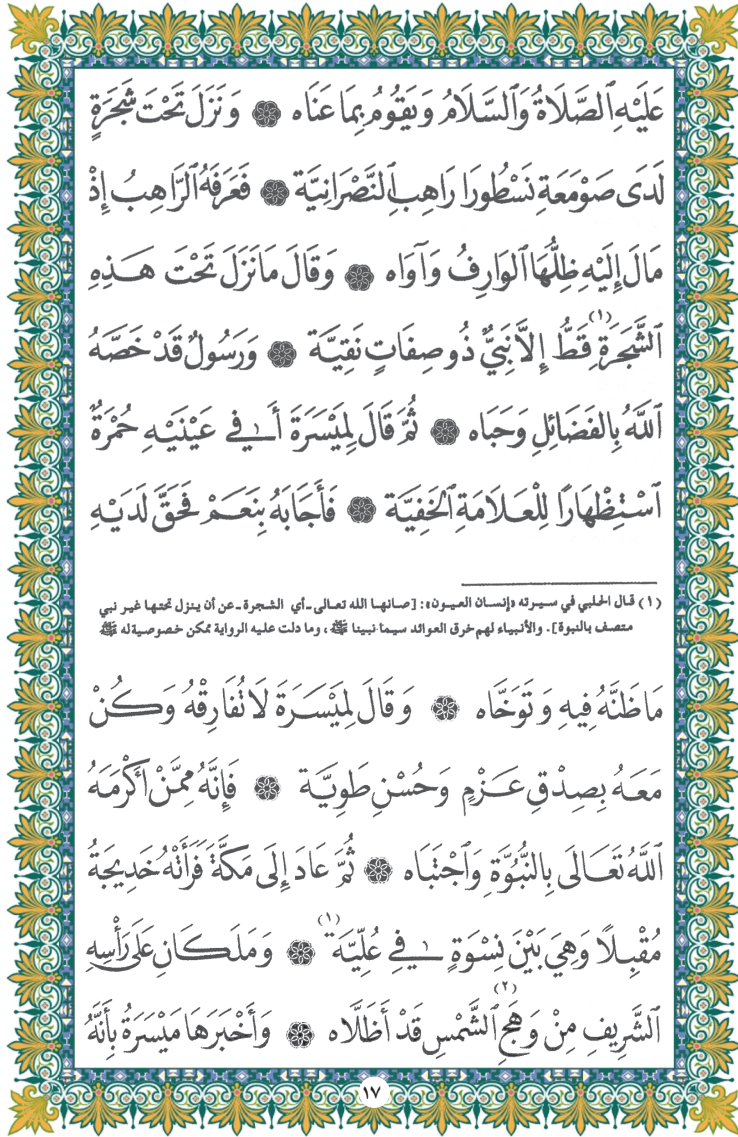 عَلَيْهِ ٱلصَّلَاةُ وَٱلسَّلَامُ وَيَقُومُ بِمَا عَنَاه ۞ وَنَزَلَ تَحْتَ شَجَرَةٍ
لَدَى صَوْمَعَةِ نَسْطُورَا رَاهِبِ ٱلنَّصْرَانِيَّة ۞ فَعَرَفَهُ ٱلرَّاهِبُ إِذْ
مَالَ إِلَيْهِ ظِلُّهَا ٱلوَارِفُ وَآوَاه ۞ وَقَالَ مَا نَزَلَ تَحْتَ هَـذِهِ
ٱلشَّجَرَةِ (١) قَطُّ إِلَّا نَبِيٌّ ذُو صِفَاتٍ نَقِيَّة ۞ وَرَسُولٌ قَدْ خَصَّهُ
ٱللَّهُ بِالفَضَائِلِ وَحَبَاه ۞ ثُمَّ قَالَ لِمَيْسَرَةَ أَفِي عَيْنَيْهِ حُمْرَةٌ
ٱسْتِظْهَارًا لِلْعَلَامَةِ ٱلخَفِيَّة ۞ فَأَجَابَهُ بِنَعَمْ فَحَقَّ لَدَيْهِ
(١) قال الحلبي في سيرته «إنسان العيون»: [صانها الله تعالى ـ أي الشجرة ـ عن أن ينزل تحتها غير نبي
متصف بالنبوة]. والأنبياء لهم خرق العوائد سيما نبينا ﷺ، وما دلت عليه الرواية ممكن خصوصية له ﷺ
مَا ظَنَّهُ فِيهِ وَتَوَخَّاه ۞ وَقَالَ لِمَيْسَرَةَ لَا تُفَارِقْهُ وَكُنْ
مَعَهُ بِصِدْقِ عَزْمٍ وَحُسْنِ طَوِيَّة ۞ فَإِنَّهُ مِمَّنْ أَكْرَمَهُ
ٱللَّهُ تَعَالَى بِالنُّبُوَّةِ وَٱجْتَبَاه ۞ ثُمَّ عَادَ إِلَى مَكَّةَ فَرَأَتْهُ خَدِيجَةُ
مُقْبِلًا وَهِيَ بَيْنَ نِسْوَةٍ فِي عُلِّيَّة (١) ۞ وَمَلَكَانِ عَلَى رَأْسِهِ
ٱلشَّرِيفِ مِنْ وَهَجِ (٢) ٱلشَّمْسِ قَدْ أَظَلَّاه ۞ وَأَخْبَرَهَا مَيْسَرَةُ بِأَنَّهُ
١٧